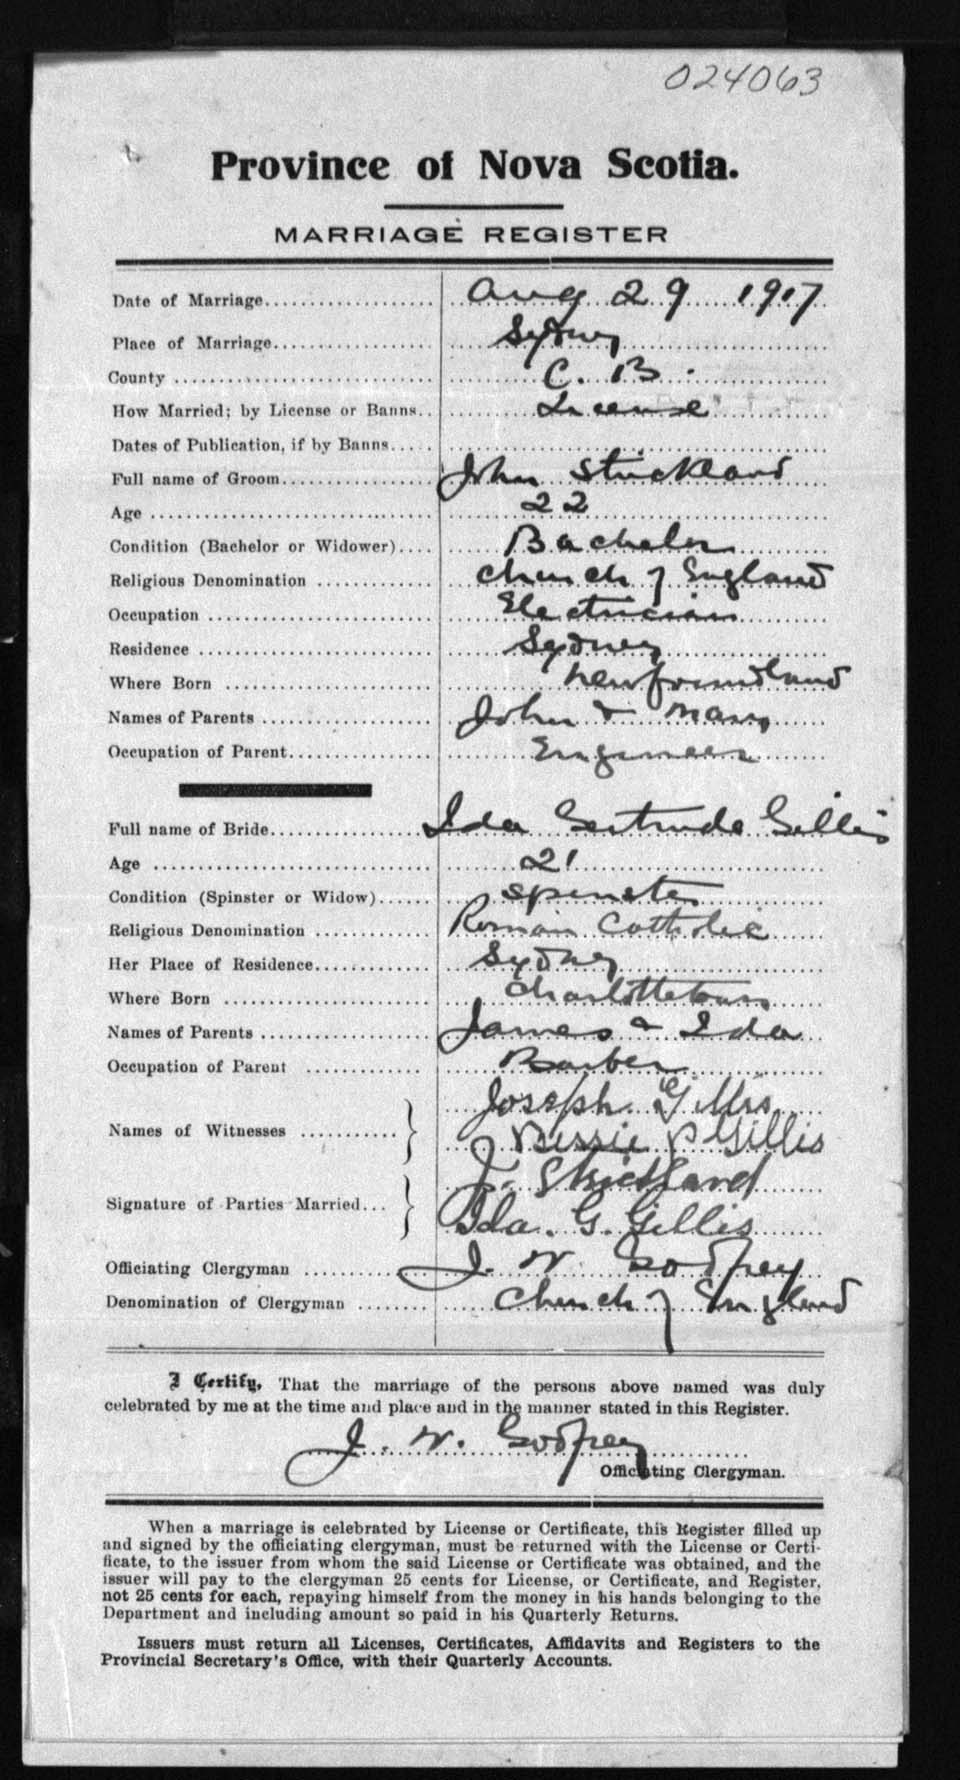 024063
Province of Nova Scotia.
MARRIAGE REGISTER
Date of Marriage.................. Aug 29 1917
Place of Marriage.................. Sydney
County .............................. C. B.
How Married; by License or Banns.. License
Dates of Publication, if by Banns.....
Full name of Groom................. John Strickland
Age ................................. 22
Condition (Bachelor or Widower).... Bachelor
Religious Denomination ............. Church of England
Occupation .......................... Electrician
Residence ........................... Sydney
Where Born ......................... Newfoundland
Names of Parents .................... John & Mary
Occupation of Parent................ Engineer
Full name of Bride.................. Ida Gertrude Gillis
Age ................................. 21
Condition (Spinster or Widow)...... Spinster
Religious Denomination ............. Roman Catholic
Her Place of Residence.............. Sydney
Where Born ......................... Charlottetown
Names of Parents .................... James & Ida
Occupation of Parent .............. Barber
Names of Witnesses ........... Joseph Gillis
Bessie P Gillis
Signature of Parties Married... J. Strickland
Ida. G. Gillis
Officiating Clergyman ............. J. W. Godfrey
Denomination of Clergyman ........ Church of England
I Certify, That the marriage of the persons above named was duly
celebrated by me at the time and place and in the manner stated in this Register.
J. W. Godfrey
Officiating Clergyman.
When a marriage is celebrated by License or Certificate, this Register filled up
and signed by the officiating clergyman, must be returned with the License or Certi-
ficate, to the issuer from whom the said License or Certificate was obtained, and the
issuer will pay to the clergyman 25 cents for License, or Certificate, and Register,
not 25 cents for each, repaying himself from the money in his hands belonging to the
Department and including amount so paid in his Quarterly Returns.
Issuers must return all Licenses, Certificates, Affidavits and Registers to the
Provincial Secretary's Office, with their Quarterly Accounts.